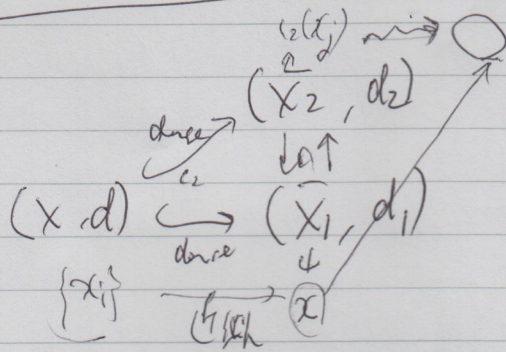 ι₂(xⱼ)
(X̄₂, d₂)
dense
ι₂
(X, d) (X̄₁, d₁)
dense
{xᵢ} x